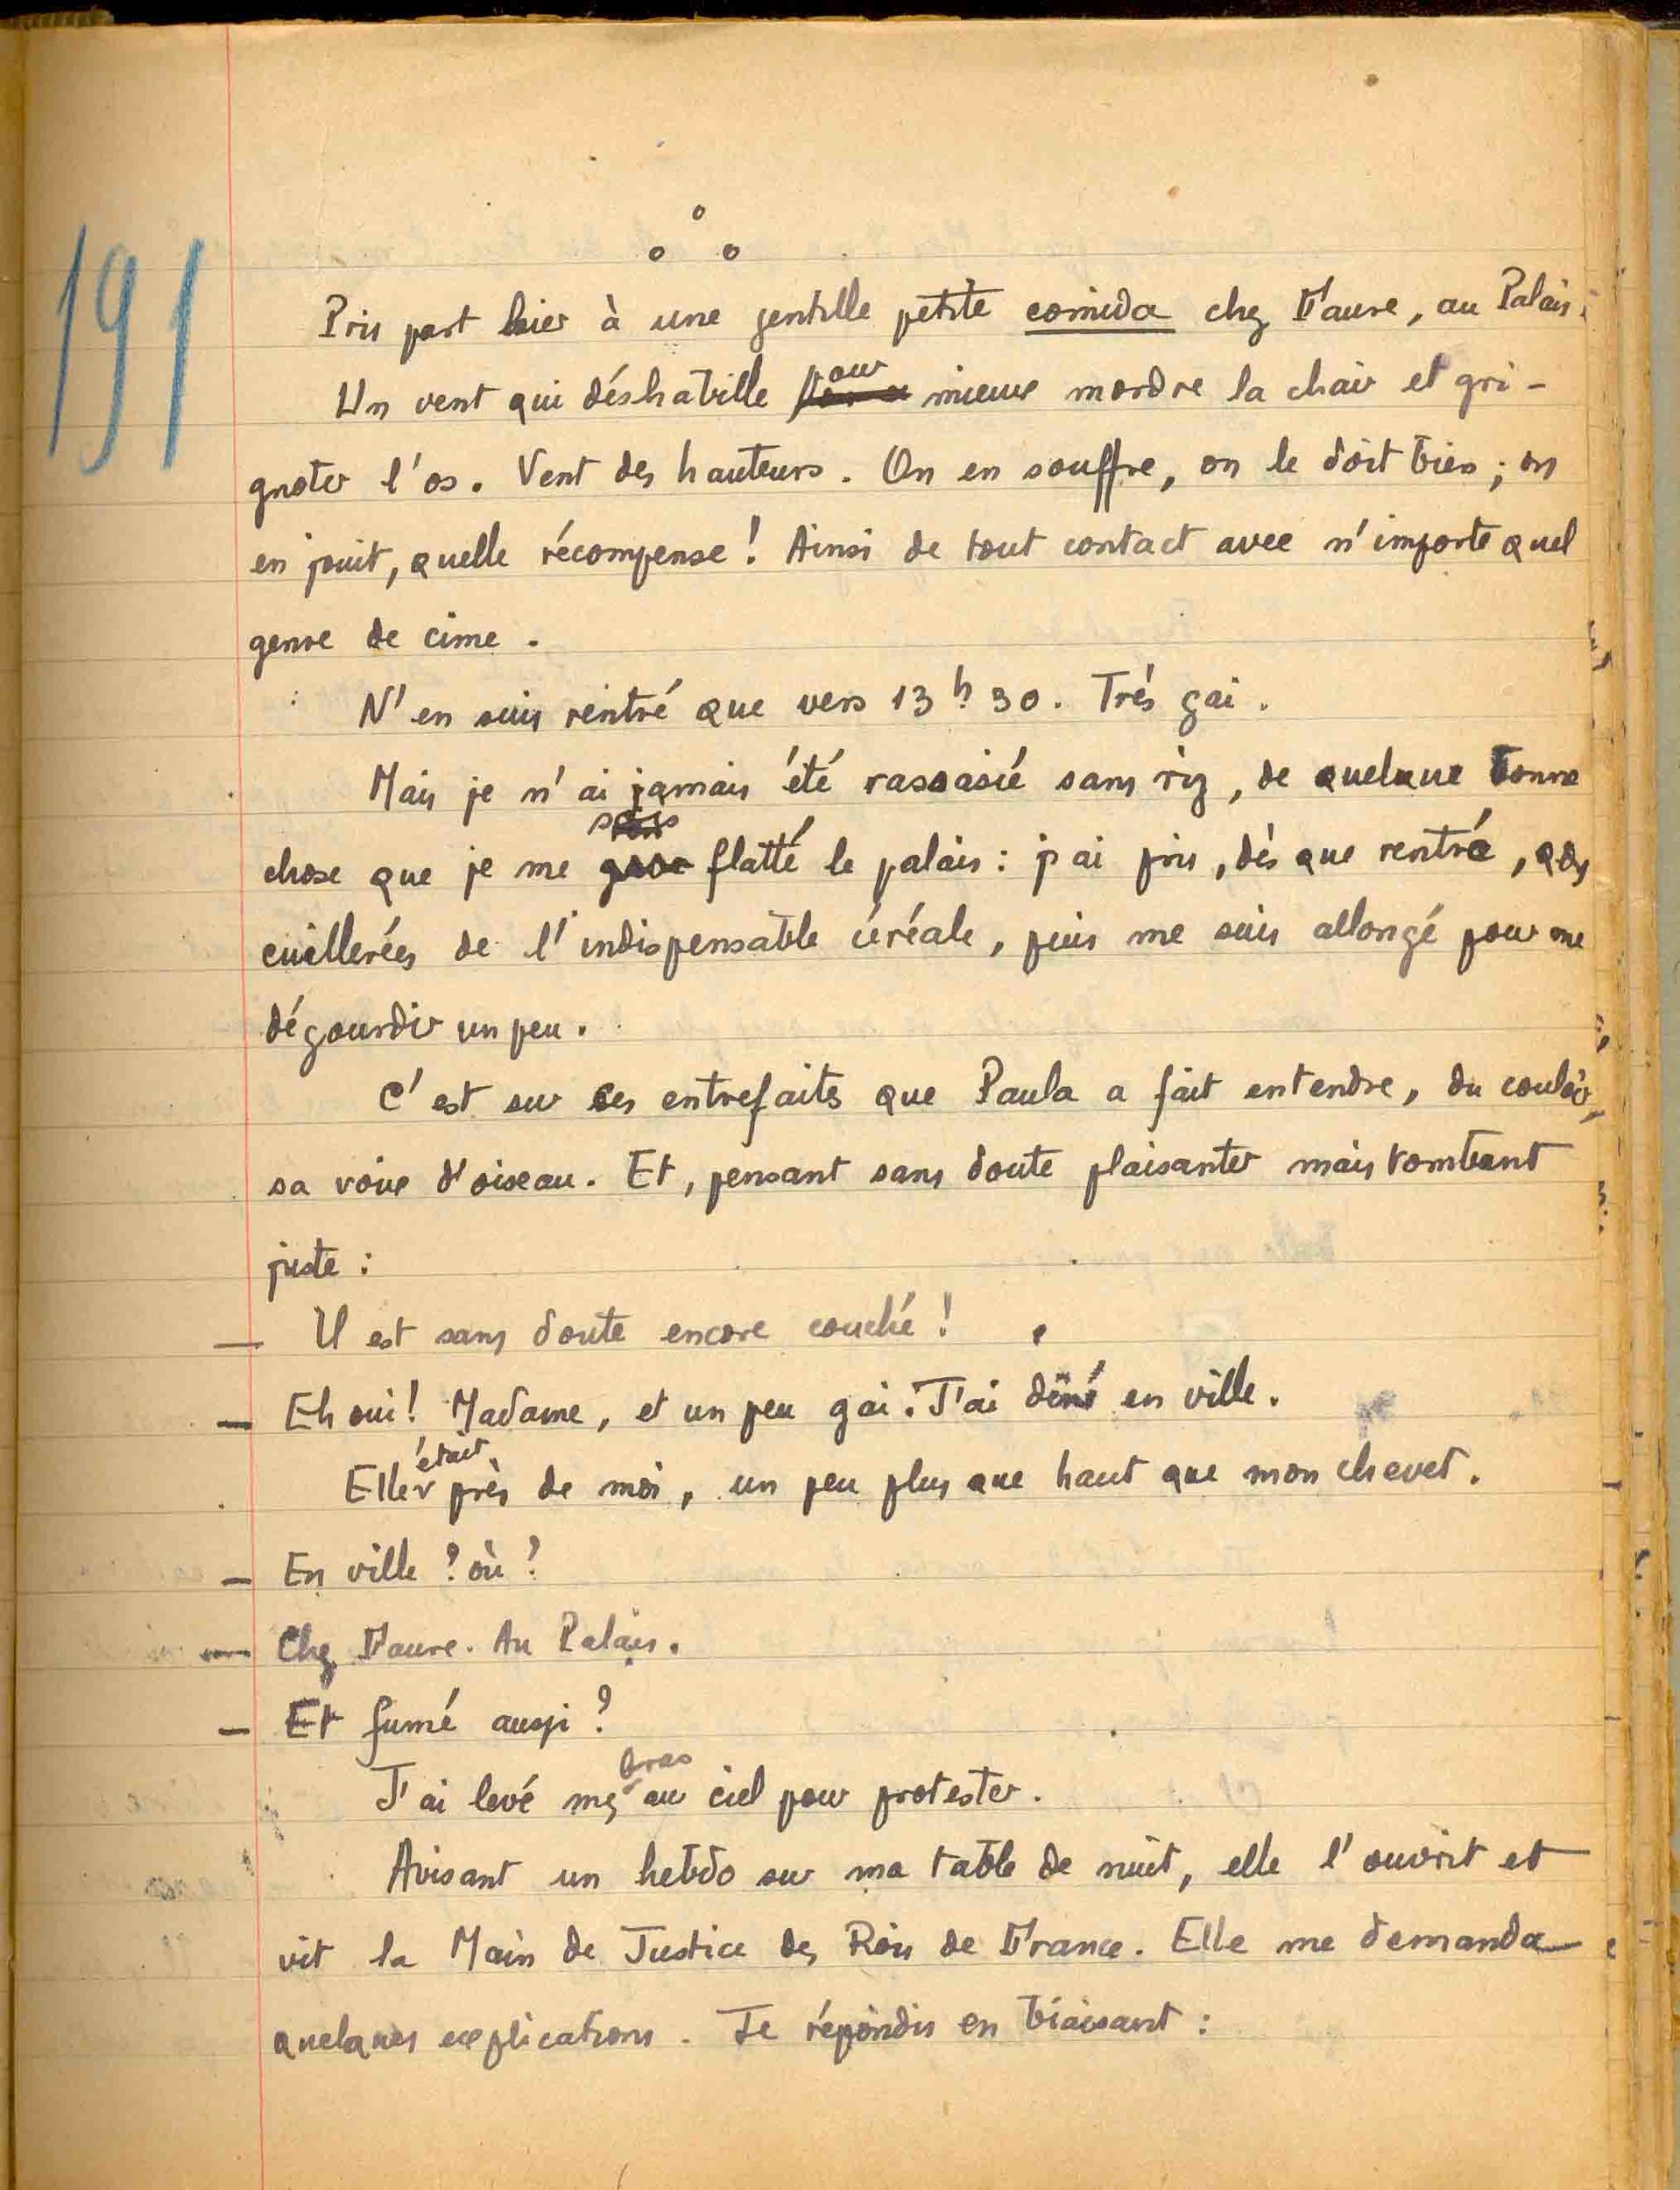 191
Pris part hier à une gentille petite comida chez Faure, au Palais.
Un vent qui déshabille pour mieux mordre la chair et gri-
gnoter l'os. Vent des hauteurs. On en souffre, on le doit bien ; on
en jouit, quelle récompense ! Ainsi de tout contact avec n'importe quel
genre de cime.
N'en suis rentré que vers 13 h 30. Très gai.
Mais je n'ai jamais été rassasié sans riz, de quelque bonne
chose que je me sois flatté le palais : j'ai pris, dès que rentré, qqs
cuillerées de l'indispensable céréale, puis me suis allongé pour me
dégourdir un peu.
C'est sur ces entrefaits que Paula a fait entendre, du couloir,
sa voix d'oiseau. Et, pensant sans doute plaisanter mais tombant
juste :
— Il est sans doute encore couché !
— Eh oui ! Madame, et un peu gai. J'ai dîné en ville.
Elle était près de moi, un peu plus que haut que mon chevet.
— En ville ? où ?
— Chez Faure. Au Palais.
— Et fumé aussi ?
J'ai levé mes bras au ciel pour protester.
Avisant un hebdo sur ma table de nuit, elle l'ouvrit et
vit la Main de Justice des Rois de France. Elle me demanda
quelques explications. Je répondis en biaisant :